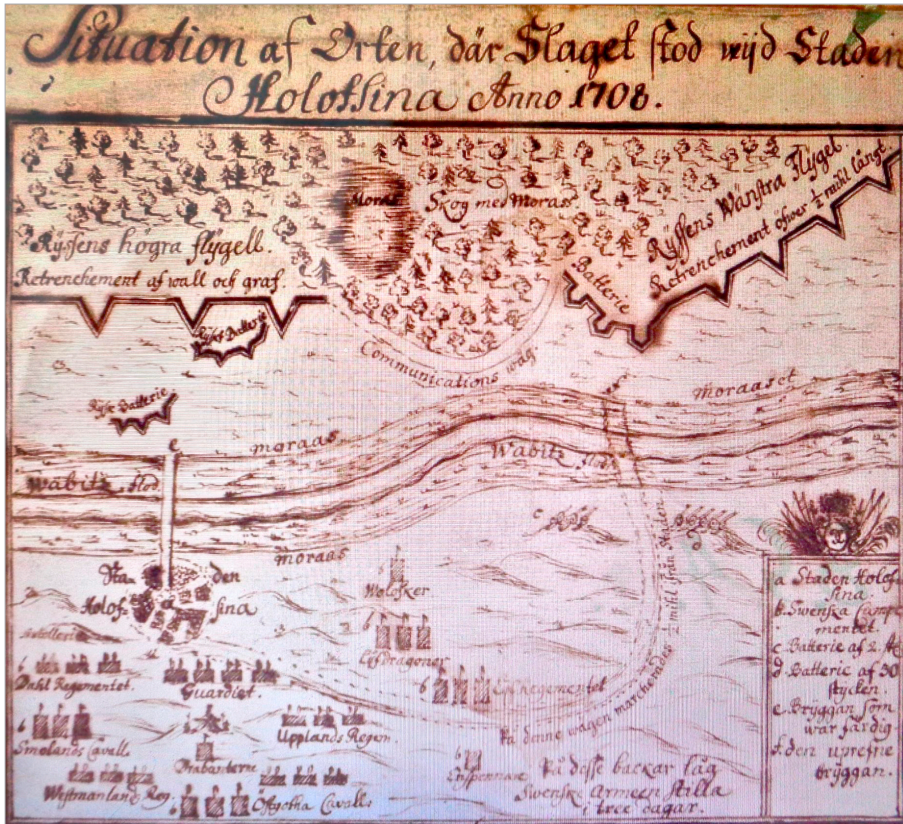 Situation af Orten, där Slaget stod wijd Staden
Holofsina Anno 1708.
Moras
Skog med Moras
Ryssens högra flygell.
Retrenchement af wall och graf.
Ryssens Wänstra Flygel.
Retrenchement öfver ½ mihl långt
Batterie
Batterie
Communications wäg
Batterie
moraas
Moraaset
Wabitz flod
Wabitz flod
e
c
d
moraas
Sta- den
Holof- sina
a
Wolosker
Lifdragoner
Dahl Regementet.
Guardiet.
Upplands Regem.
Smolands Cavall.
Drabanterne
Westmanland Reg.
Östgotha Cavall:
På denne wägen marcherades ½ mihl från Staden
På desse backar låg
Swenske Armeen stilla
i tree dagar.
a Staden Holof-
sina.
b. Swenska
mentet.
c Batterie af 2.
d. Batterie af 30
stycken.
e. Bryggan som
war färdig
f. den uprefne
bryggan.